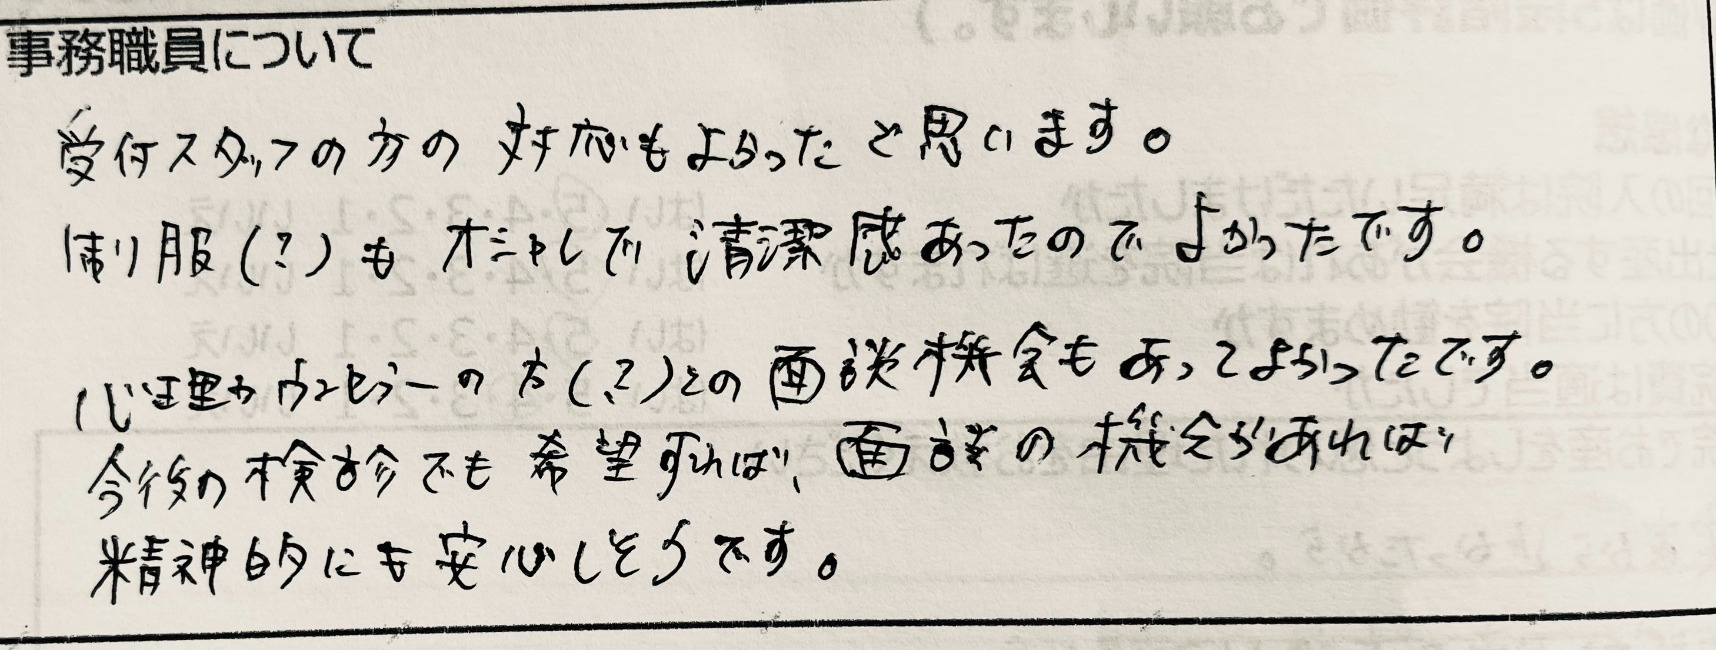 事務職員について
受付スタッフの方の対応もよかったと思います。
制服(?)もオシャレで清潔感あったのでよかったです。
心理カウンセラーの方(?)との面談機会もあってよかったです。
今後の検診でも希望すれば、面談の機会があれば
精神的にも安心しそうです。